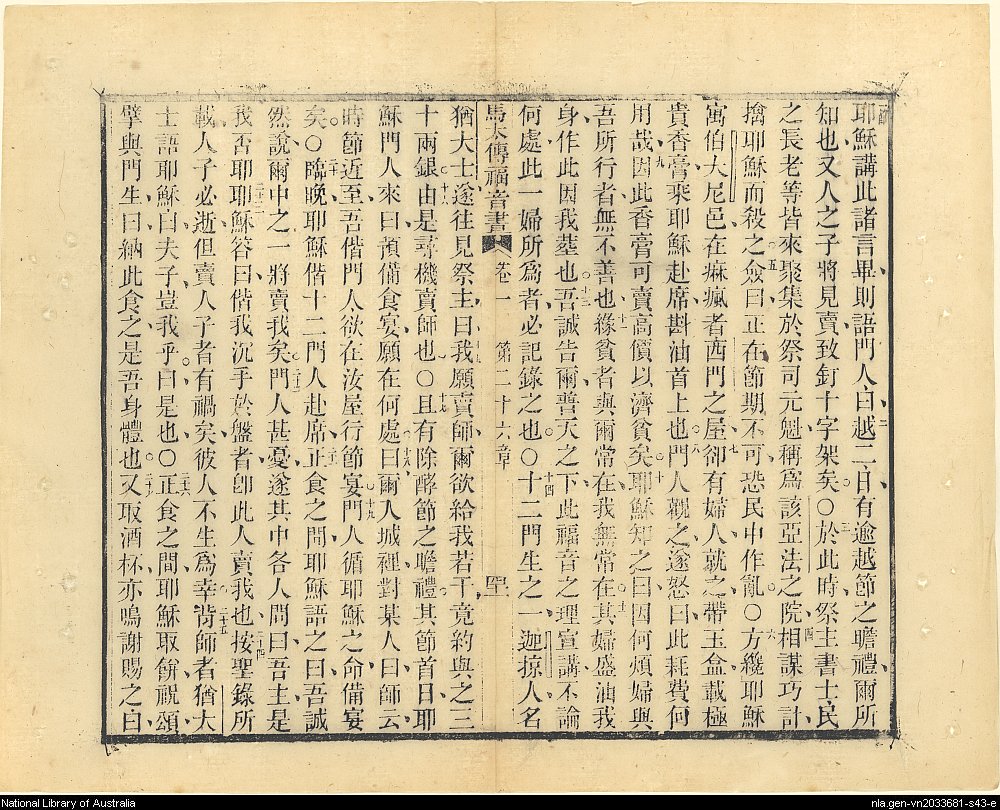 耶穌講此諸言畢則語門人曰越二日有逾越節之瞻禮爾所
知也又人之子將見賣致釘十字架矣○於此時祭主書士民
之長老等皆來聚集於祭司元魁稱為該亞法之院相謀巧計
擒耶穌而殺之僉曰正在節期不可恐民中作亂○方纔耶穌
寓伯大尼邑在痳瘋者西門之屋卻有婦人就之帶玉盒載極
貴香膏乘耶穌赴席斟油首上也門人觀之遂怒曰此耗費何
用哉因此香膏可賣高價以濟貧矣耶穌知之曰因何煩婦與
吾所行者無不善也緣貧者與爾常在我無常在其婦盛油我
身作此因我塟也吾誠告爾普天之下此福音之理宣講不論
何處此一婦所為者必記錄之也○十二門生之一迦掠人名
馬太傳福音書 卷一 第二十六章
猶大士遂往見祭主曰我願賣師爾欲給我若干竟約與之三
十兩銀由是尋機賣師也○且有除酵節之瞻禮其節首日耶
穌門人來曰預備食宴願在何處曰爾入城裡對某人曰師云
時節近至吾偕門人欲在汝屋行節宴門人循耶穌之命備宴
矣○臨晚耶穌偕十二門人赴席正食之間耶穌語之曰吾誠
然說爾中之一將賣我矣門人甚憂遂其中各人問曰吾主是
我否耶耶穌答曰偕我沉手於盤者卽此人賣我也按聖錄所
載人子必逝但賣人子者有禍矣彼人不生為幸背師者猶大
士語耶穌曰夫子豈我乎曰是也○正食之間耶穌取餅祝頌
擘與門生曰納此食之是吾身體也又取酒杯亦鳴謝賜之曰
National Library of Australia
nla.gen-vn2033681-s43-e